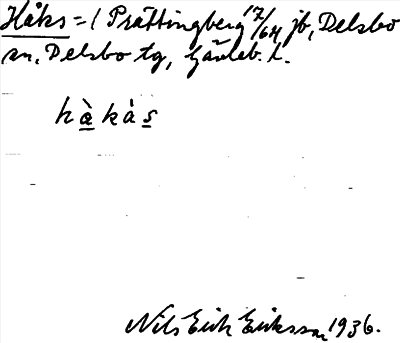 Håks = ( Prättingberg 17/64 jb, Delsbo
sn, Delsbo tg, Gävleb. l.
hàkàs
Nils Erik Eriksson 1936.